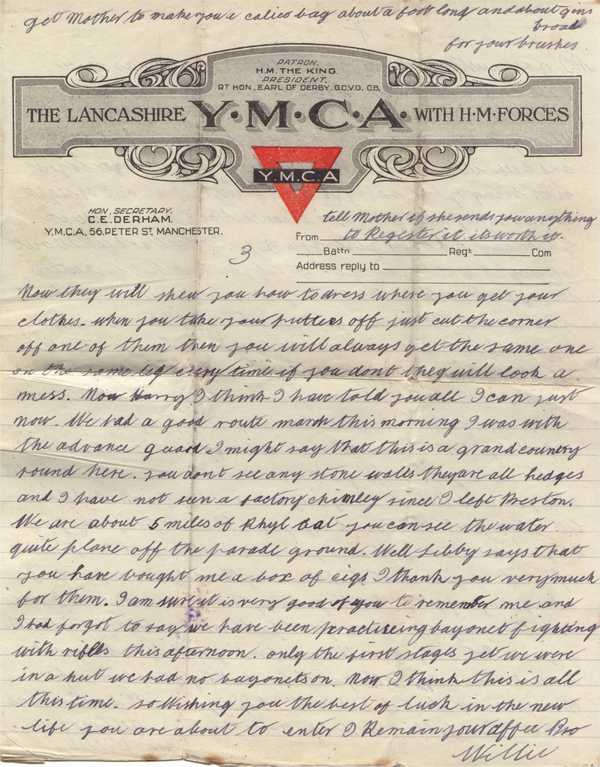 get Mother to make you a calico bag about a foot long and about 9ins
broad
for your brushes
PATRON.
H.M. THE KING
PRESIDENT.
RT HON. EARL OF DERBY. G.C.V.O. C.B.
THE LANCASHIRE Y·M·C·A· WITH H·M·FORCES
Y.M.C.A
HON. SECRETARY.
C.E. DERHAM.
Y.M.C.A, 56. PETER ST. MANCHESTER.
3
tell Mother if she sends you anything
From to Register it its worth it.
Battn Regt Com
Address reply to
Now they will shew you how to dress where you get your
clothes. when you take your putties off just cut the corner
off one of them then you will always get the same one
on the same leg every time if you dont they will look a
mess. Now Harry I think I have told you all I can just
now. We had a good route march this morning I was with
the advance guard I might say that this is a grand country
round here. you dont see any stone walls they are all hedges
and I have not seen a factory chimley since I left Preston.
We are about 5 miles of Rhyl but you can see the water
quite plane off the parade ground. Well Libby says that
you have bought me a box of cigs I thank you very much
for them. I am sure it is very good of you to remember me and
I had forgot to say we have been practiseing bayonet fighting
with rifles this afternoon. only the first stages yet we were
in a hut we had no bayonets on. Now I think this is all
this time. so wishing you the best of luck in the new
life you are about to enter I Remain your affec Bro
Willie